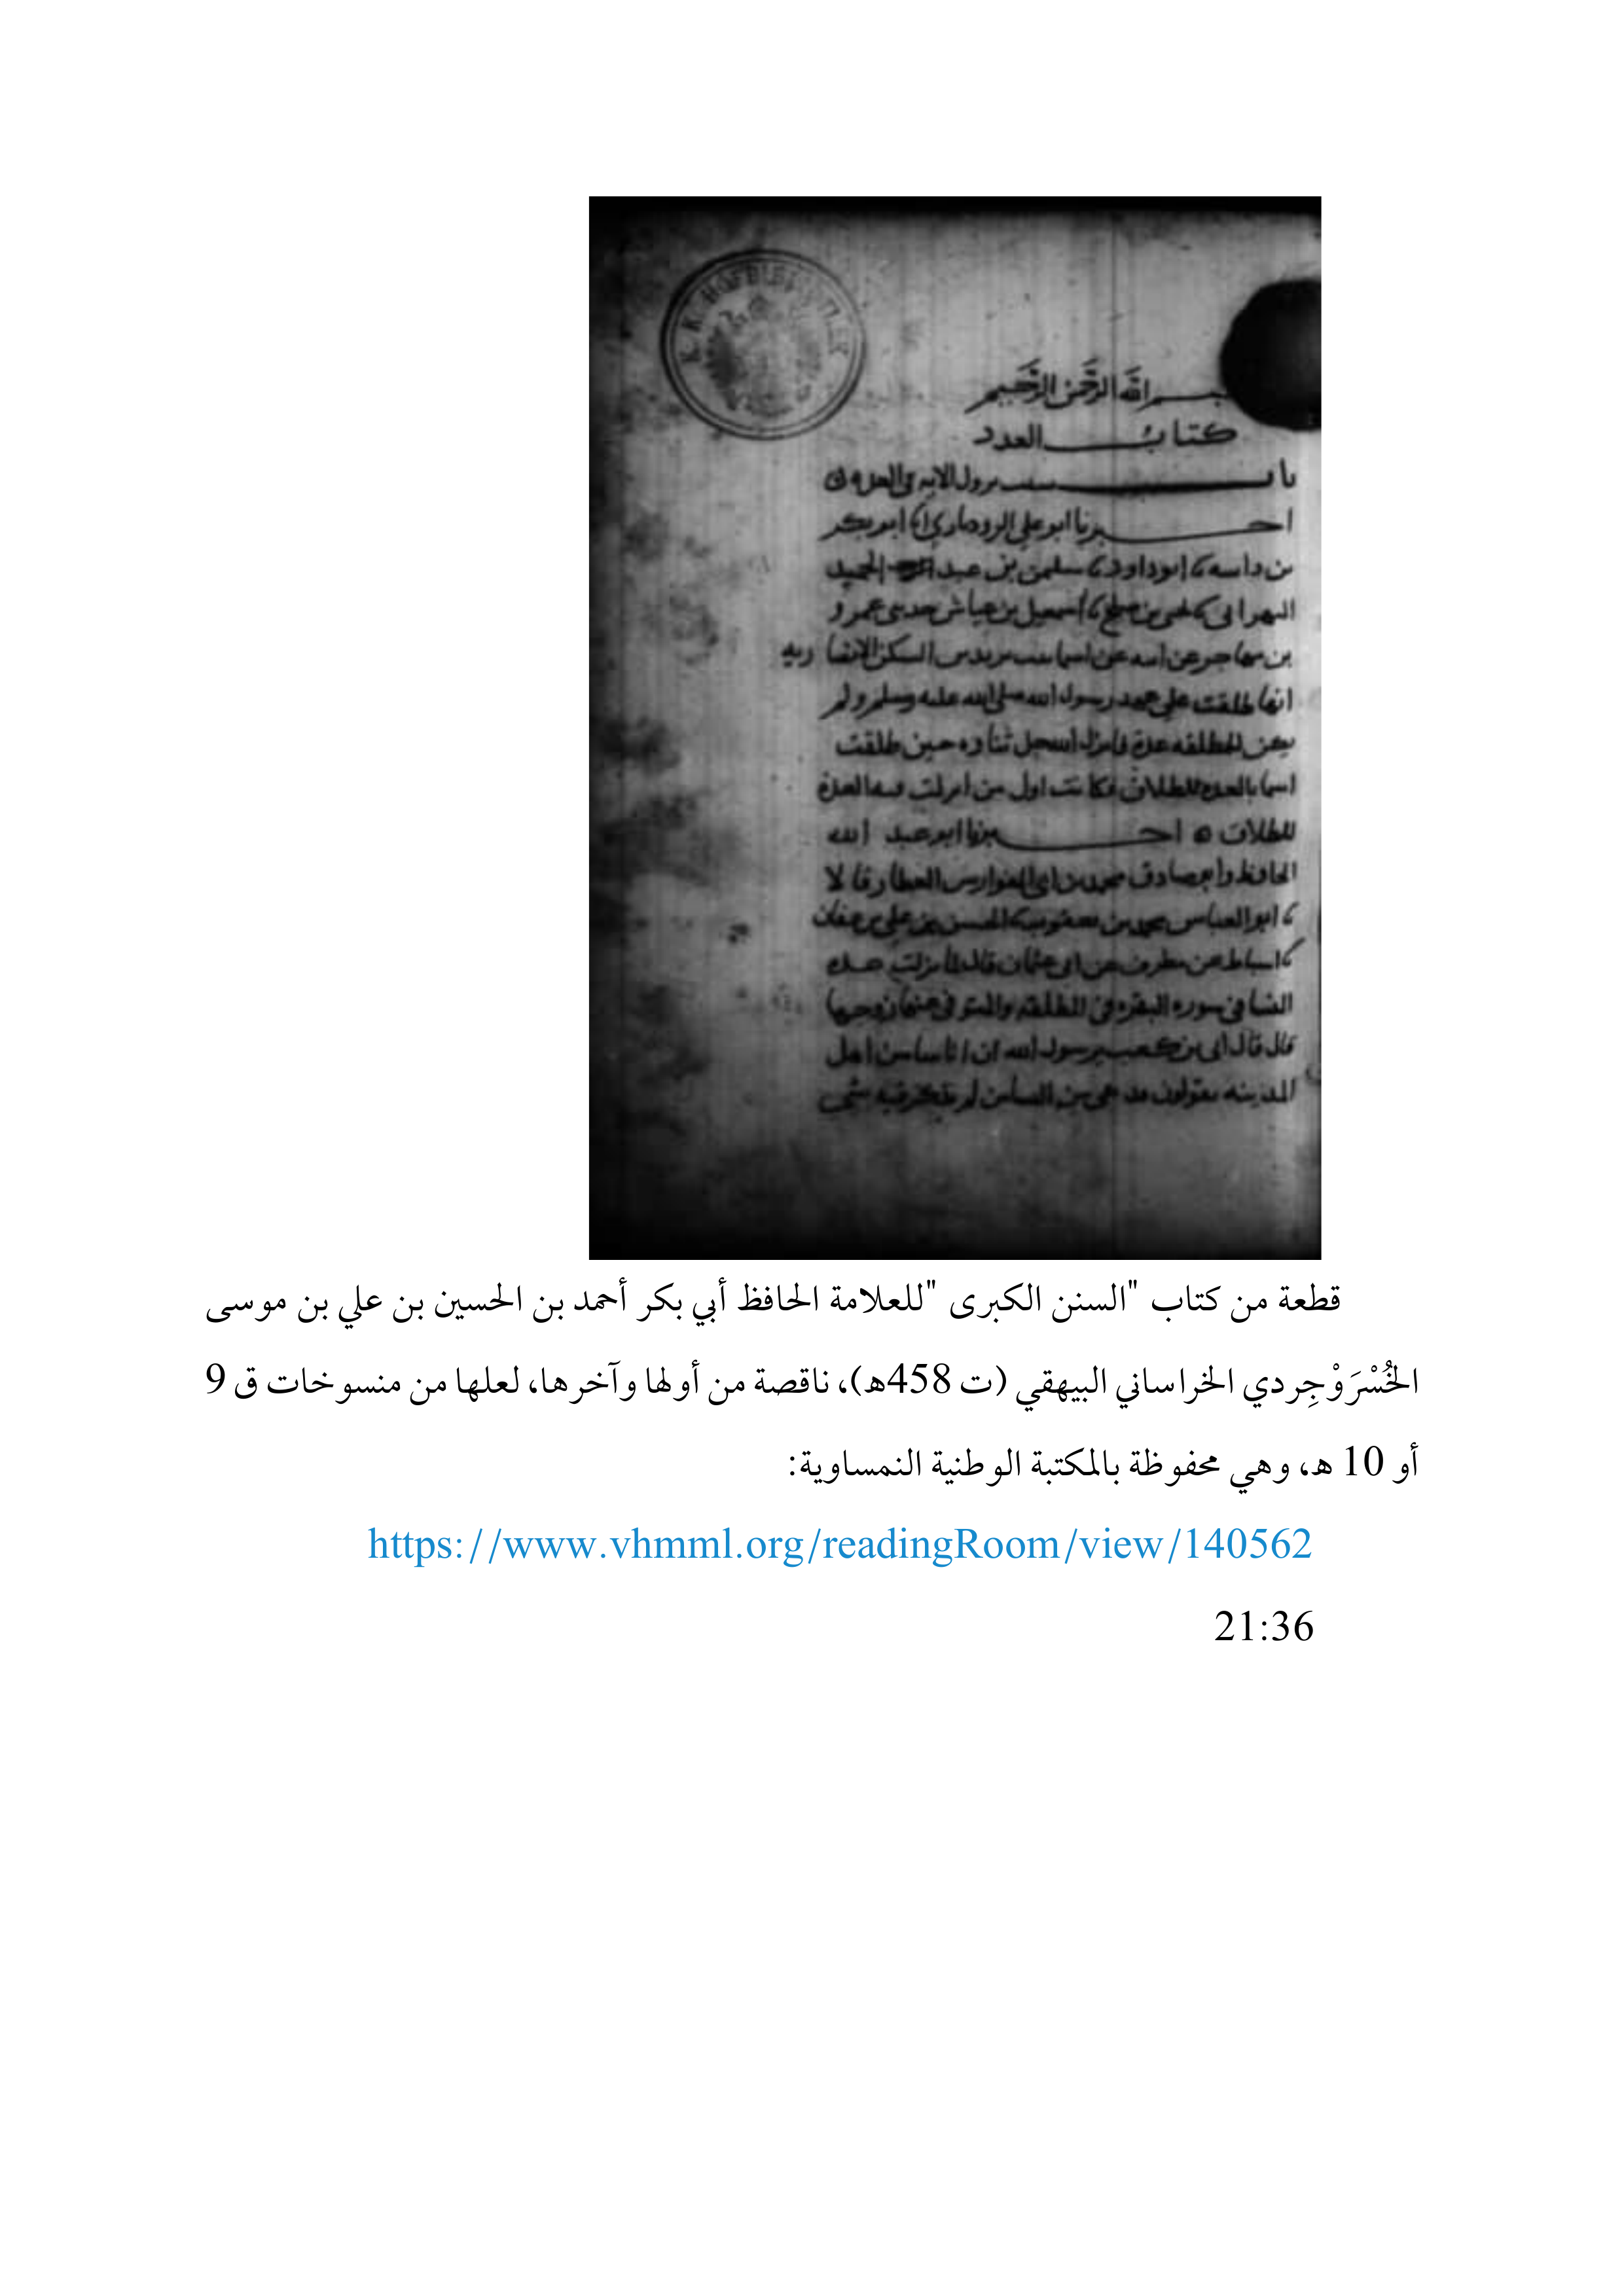 K. K. HOFBIBLIOTHEK
بسم الله الرحمن الرحيم
كتاب العدد
باب سبب نزول الايه في العده
اخبرنا ابو علي الروذباري انا ابو بكر
بن داسه نا ابو داود نا سليمن بن عبد الحميد
البهراني نا يحيى بن صالح نا اسمعيل بن عياش حدثني عمرو
بن مهاجر عن ابيه عن اسما بنت يزيد بن السكن الانصاريه
انها طلقت على عهد رسول الله صلى الله عليه وسلم ولم
يكن للمطلقه عدة فانزل الله عز وجل ثناوه حين طلقت
اسما بالعده للطلاق فكانت اول من انزلت فيه العدة
للطلاق ه اخبرنا ابو عبد الله
الحافظ وابو صادق محمد بن ابي الفوارس العطار قالا
نا ابو العباس محمد بن يعقوب نا الحسن بن علي بن عفان
نا اسباط عن مطرف عن ابي عثمان قال لما نزلت عدة
النسا في سوره البقره في المطلقه والمتوفى عنها زوجها
قال قال ابي بن كعب يرسول الله ان اناسا من اهل
المدينه يقولون قد بقي من النسا من لم يذكر فيه شي
قطعة من كتاب "السنن الكبرى "للعلامة الحافظ أبي بكر أحمد بن الحسين بن علي بن موسى
الخُسْرَوْجِردي الخراساني البيهقي (ت 458هـ)، ناقصة من أولها وآخرها، لعلها من منسوخات ق 9
أو 10 هـ، وهي محفوظة بالمكتبة الوطنية النمساوية:
https://www.vhmml.org/readingRoom/view/140562
21:36